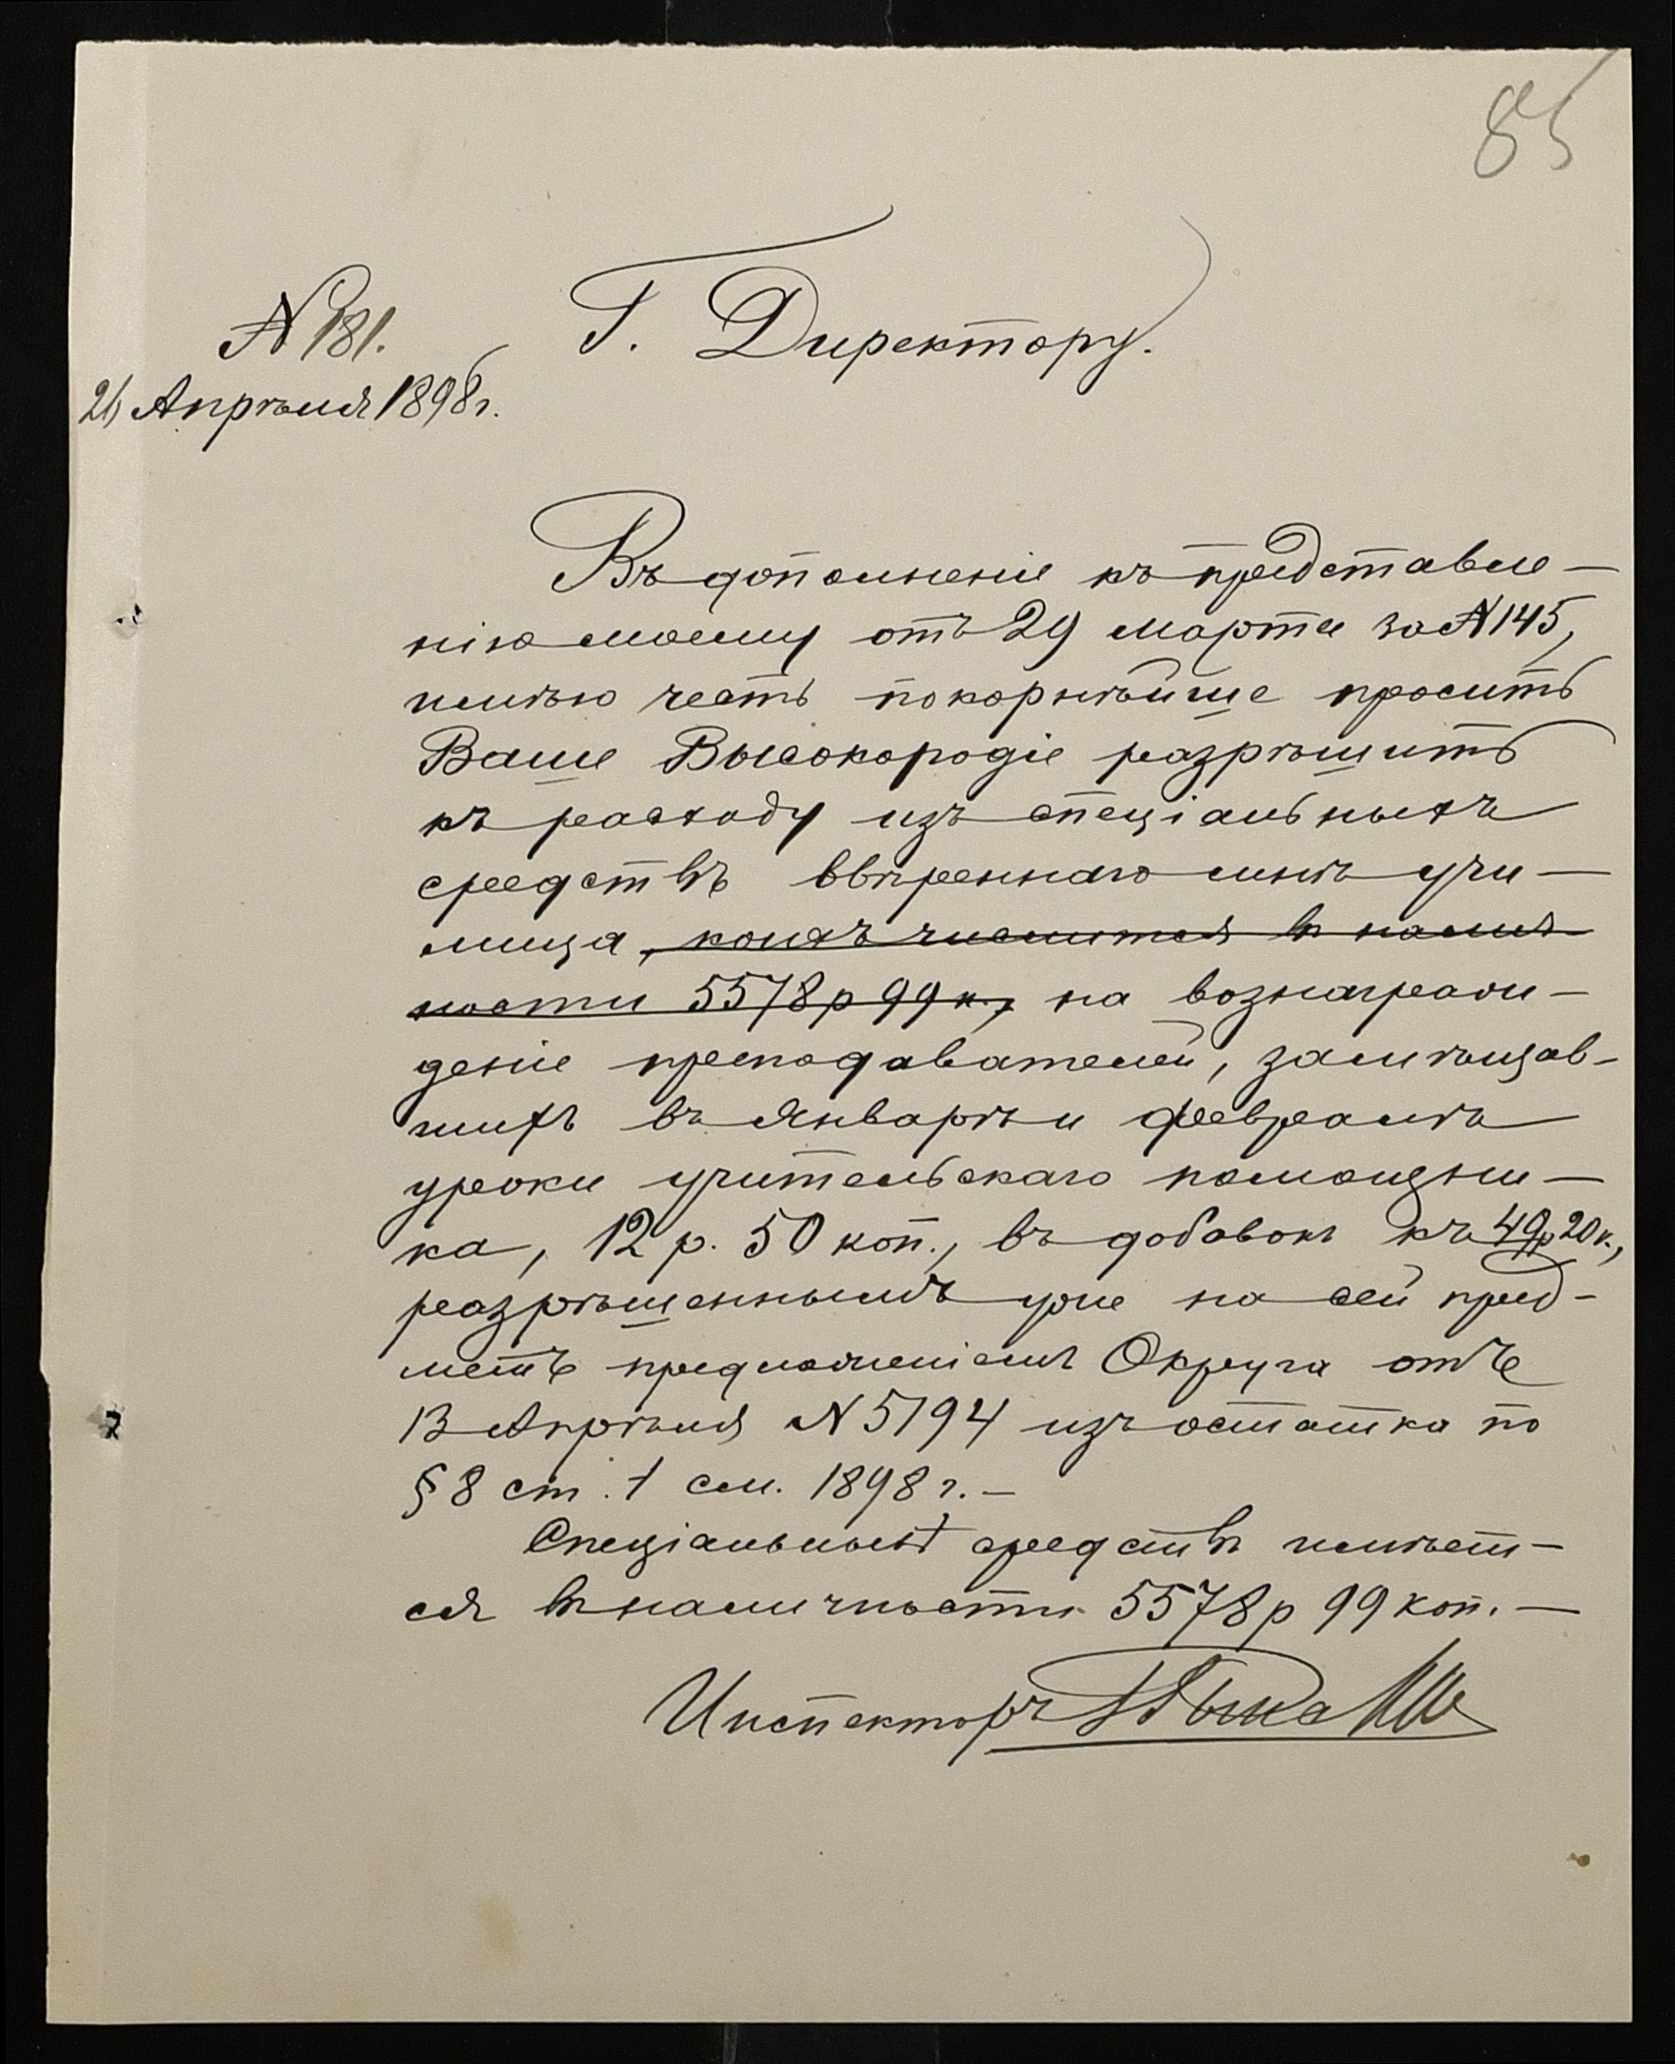 85
№ 181.
Г. Директору.
26 Апрѣля 1898 г.
Въ дополненіе къ представле-
нію моему отъ 29 марта за № 145,
имѣю честь покорнѣйше просить
Ваше Высокородіе разрѣшить
къ расходу изъ спеціальныхъ
средствъ ввѣреннаго мнѣ учи-
лища, коихъ числится въ налич-
ности 5578 р 99 к., на вознаграж-
деніе преподавателей, замѣщав-
шихъ въ Январѣ и Февралѣ
уроки учительскаго помощни-
ка, 12 р. 50 коп., въ добавокъ къ 49 р 20 к.,
разрѣшеннымъ уже на сей пред-
метъ предложеніемъ Округа отъ
13 Апрѣля № 5194 изъ остатка по
§ 8 ст. 1 см. 1898 г. —
Спеціальныхъ средствъ имѣет-
ся въ наличности 5578 р 99 коп. —
Инспекторъ